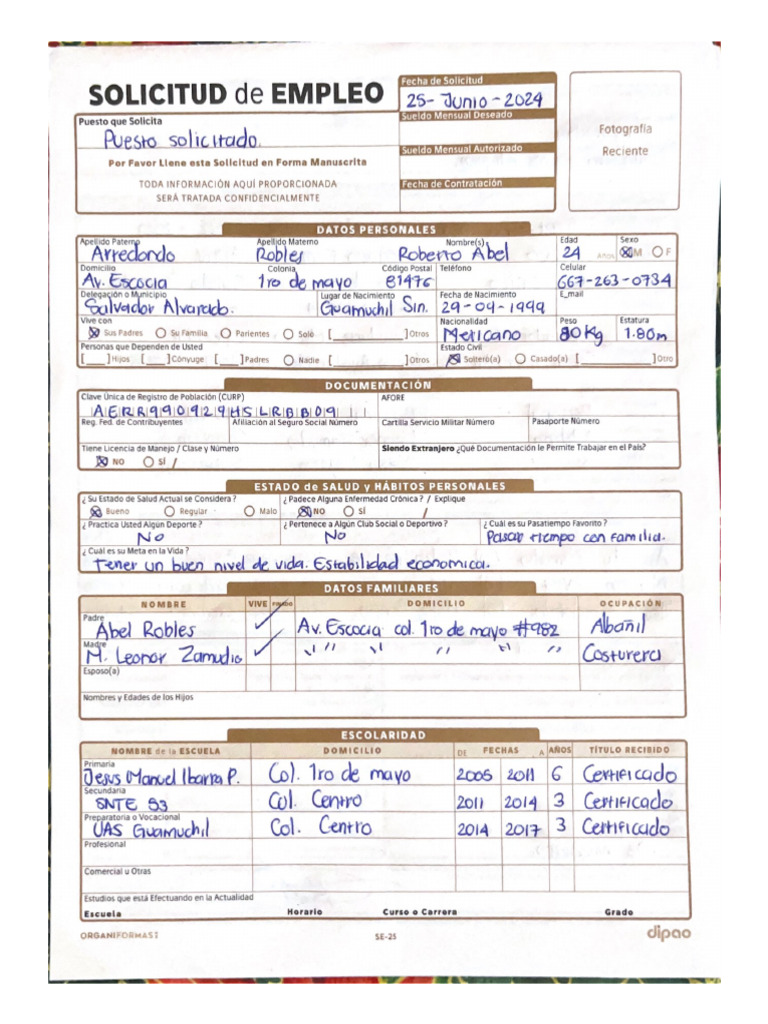 SOLICITUD de EMPLEO
Fecha de Solicitud
25-Junio-2024
Fotografía
Reciente
Puesto que Solicita
Puesto solicitado.
Sueldo Mensual Deseado
Por Favor Llene esta Solicitud en Forma Manuscrita
Sueldo Mensual Autorizado
TODA INFORMACIÓN AQUÍ PROPORCIONADA
SERÁ TRATADA CONFIDENCIALMENTE
Fecha de Contratación
DATOS PERSONALES
Apellido Paterno Apellido Materno Nombre(s) Edad Sexo
Arredondo Robles Roberto Abel 24 Años M F
Domicilio Colonia Código Postal Teléfono Celular
Av. Escocia 1ro de mayo 81476 667-263-0734
Delegación o Municipio Lugar de Nacimiento Fecha de Nacimiento E_mail
Salvador Alvarado. Guamuchil Sin. 29-09-1999
Vive con Nacionalidad Peso Estatura
Sus Padres Su Familia Parientes Solo [ ] Otros Mexicano 80Kg 1.80m
Personas que Dependen de Usted Estado Civil
[ ] Hijos [ ] Cónyuge [ ] Padres Nadie [ ] Otros Soltero(a) Casado(a) [ ] Otro
DOCUMENTACIÓN
Clave Única de Registro de Población (CURP) AFORE
AERR990929HSLRBB09
Reg. Fed. de Contribuyentes Afiliación al Seguro Social Número Cartilla Servicio Militar Número Pasaporte Número
Tiene Licencia de Manejo / Clase y Número Siendo Extranjero ¿Qué Documentación le Permite Trabajar en el País?
NO SÍ /
ESTADO de SALUD y HÁBITOS PERSONALES
¿Su Estado de Salud Actual se Considera? ¿Padece Alguna Enfermedad Crónica? / Explique
Bueno Regular Malo NO SÍ /
¿Practica Usted Algún Deporte? ¿Pertenece a Algún Club Social o Deportivo? ¿Cuál es su Pasatiempo Favorito?
No No Pasar tiempo con familia.
¿Cuál es su Meta en la Vida?
Tener un buen nivel de vida. Estabilidad economica.
DATOS FAMILIARES
NOMBRE VIVE FINADO DOMICILIO OCUPACIÓN
Padre
Abel Robles ✓ Av. Escocia col. 1ro de mayo #982 Albañil
Madre
M. Leonor Zamudio ✓ " " " " " Costurera
Esposo(a)
Nombres y Edades de los Hijos
ESCOLARIDAD
NOMBRE de la ESCUELA DOMICILIO DE FECHAS A AÑOS TÍTULO RECIBIDO
Primaria
Jesus Manuel Ibarra P. Col. 1ro de mayo 2005 2011 6 Certificado
Secundaria
SNTE 53 Col. Centro 2011 2014 3 Certificado
Preparatoria o Vocacional
UAS Guamuchil Col. Centro 2014 2017 3 Certificado
Profesional
Comercial u Otras
Estudios que está Efectuando en la Actualidad
Escuela Horario Curso o Carrera Grado
ORGANIFORMAST SE-25 dipao